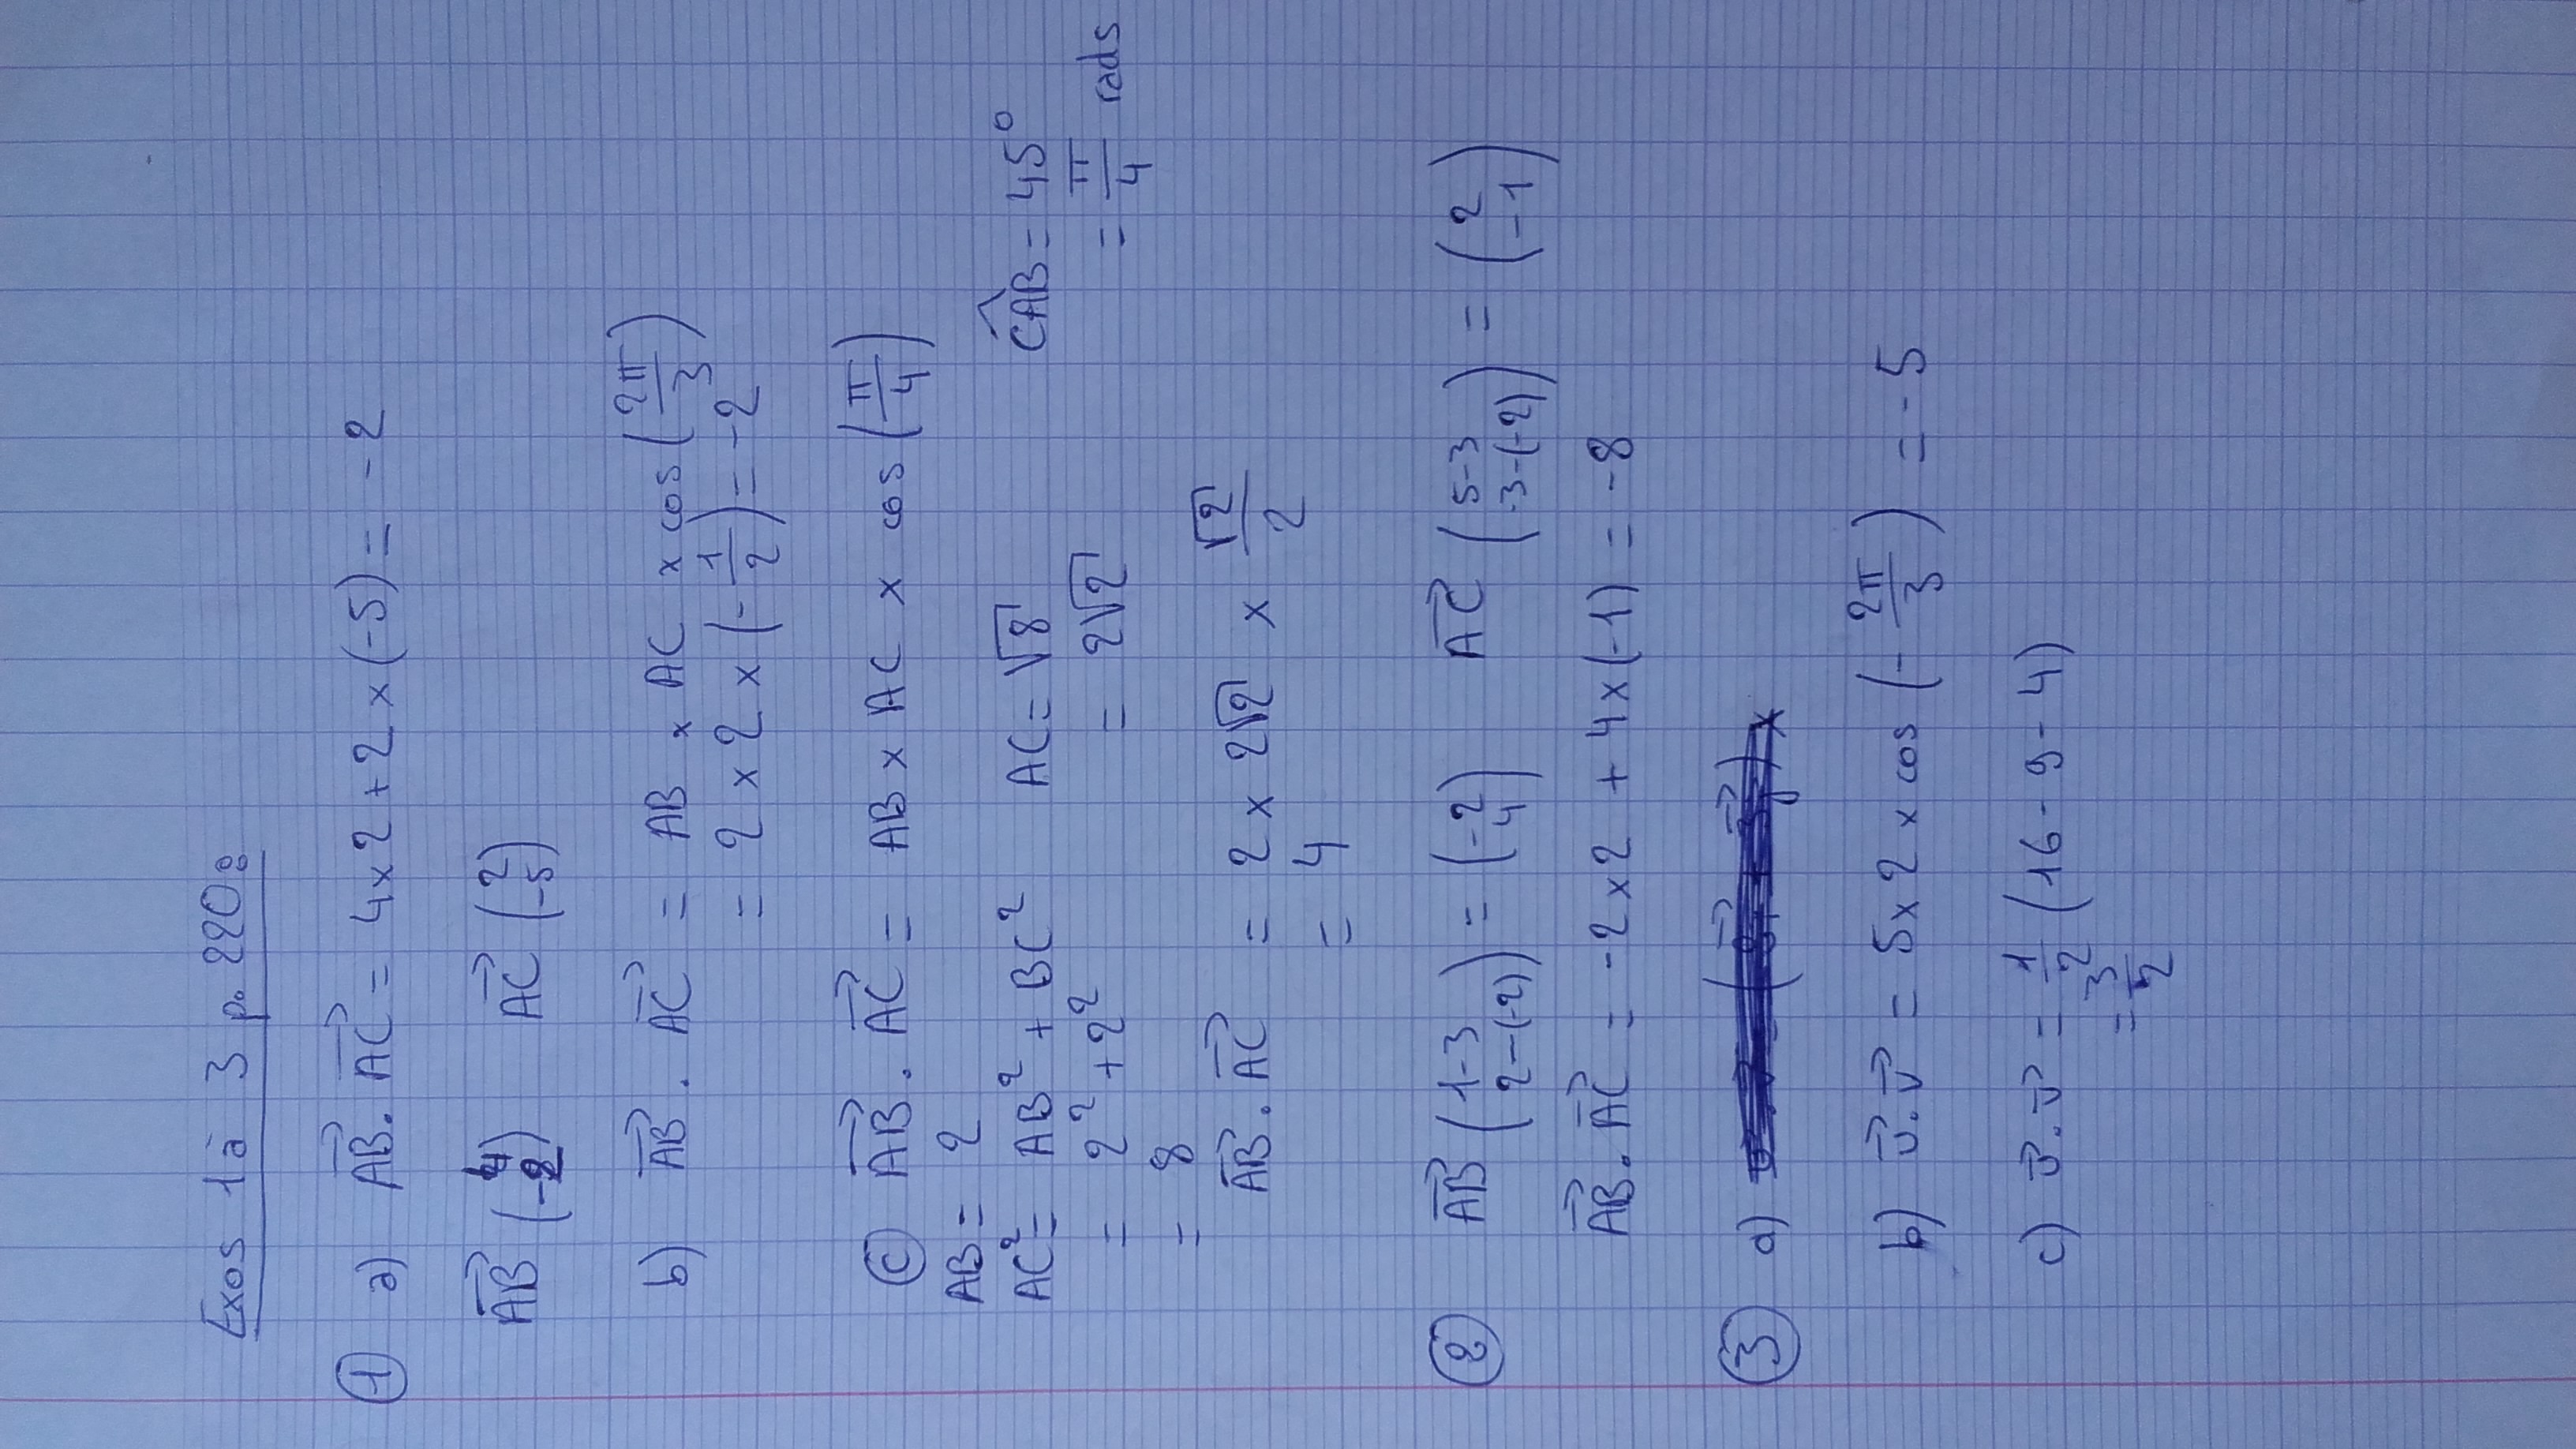 Exos 1 à 3 p. 220 :
① a) AB⃗ . AC⃗ = 4 x 2 + 2 x (-5) = -2
AB⃗ (4 / -2) AC⃗ (2 / -5)
b) AB⃗ . AC⃗ = AB x AC x cos (2π/3)
= 2 x 2 x (-1/2) = -2
ⓒ AB⃗ . AC⃗ = AB x AC x cos (π/4)
AB = 2
AC² = AB² + BC² AC = √8 CAB^ = 45°
= 2² + 2² = 2√2 = π/4 rads
= 8
AB⃗ . AC⃗ = 2 x 2√2 x √2/2
= 4
② AB⃗ (1-3 / 2-(-2)) = (-2 / 4) AC⃗ (5-3 / -3-(-2)) = (2 / -1)
AB⃗ . AC⃗ = -2 x 2 + 4 x (-1) = -8
③ a)
b) u⃗ . v⃗ = 5 x 2 x cos (-2π/3) = -5
c) u⃗ . v⃗ = 1/2 (16 - 9 - 4)
= 3/2